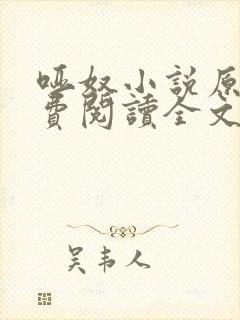 哑奴小说原
費閱讀全文
吴韦人